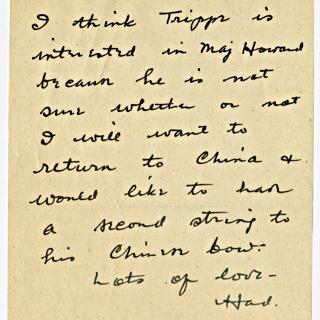 I think Tripp is
interested in Maj Howard
because he is not
sure whether or not
I will want to
return to China &
would like to have
a second string to
his Chinese bow.
Lots of love -
Had.